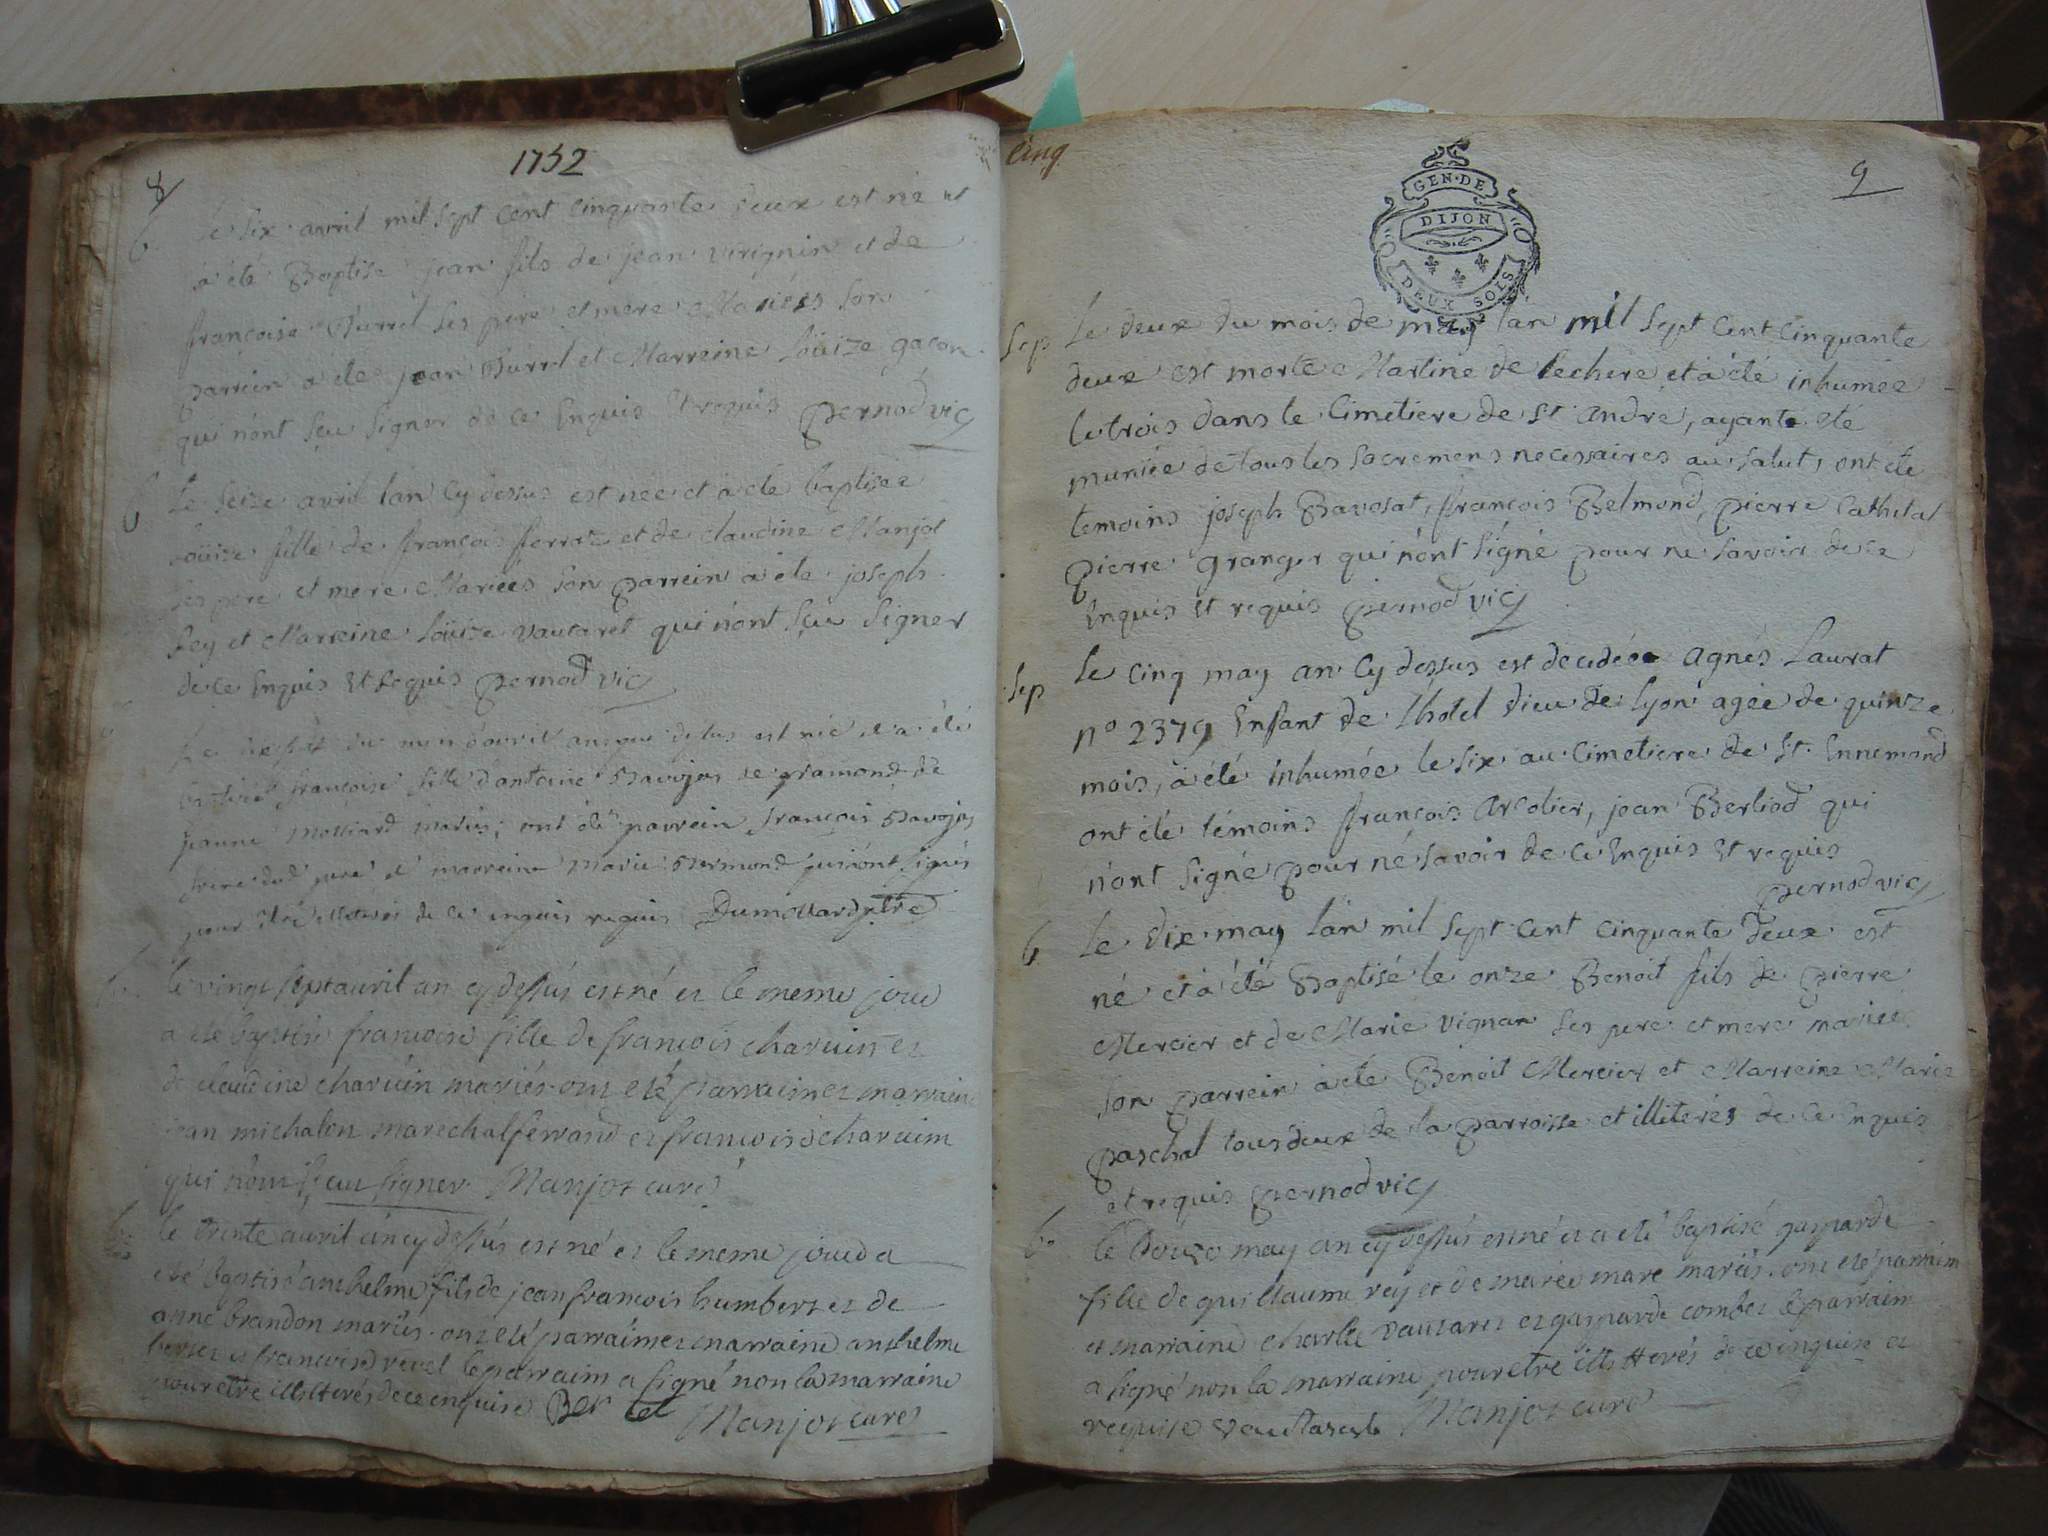 1752
8
b. le six avril mil sept cent cinquante deux est né et
a été Baptisé jean fils de jean virignin et de
françoise Burrel ses pere et mere Mariés son
parrein a éte jean Burrel et Marreine Loüize gacon
qui n'ont sçu signer de ce Enquis et requis pernod vic
b Le seize avril lan cy dessus est née et a éte baptisée
Loüise fille de françois ferraz et de claudine Manjot
ses pere et mere Mariées son parrein a éte joseph
Rey et Marreine Loüize vautaret qui n'ont sçu signer
de ce Enquis Et requis pernod vic
Le dix sept du mois d'avril an que dessus est née et a été
baptisée françoise fille d'antoine Bavozat de gramond et de
jeanne Molliard mariés; ont été parrein françois Bavozat
frere dud. pere et marreine Marie Bermond qui n'ont signés
pour être illiterés de ce enquis requis Dumollard ptre
b. le vingt sept avril an cy dessus est né et le meme jour
a eté baptisée francoise fille de francois charvin et
de claudine charvin mariés. ont eté parraim et marraine
jean michalon marechal ferrand et francoise charvim
qui n'ont sçau signer. Manjot curé
b. le trente avril an cy dessus est né et le meme jour a
eté baptisé anthelme fils de jean francois humbert et de
anne brandon mariés. ont eté parraim et marraine anthelme
bertet et francoise revel le parraim a signé non la marraine
pour etre illitterés de ce enquise Ber tet
Manjot curé
Cinq
9
GEN·DE
DIJON
DEUX SOLS
Sep Le deux du mois de may lan mil sept cent cinquante
deux est morte Martine de lechere et a été inhumée
le trois dans le Cimetiere de St andre, ayante été
muniée de tous les sacremens necessaires au salut, ont éte
temoins joseph Bavosat, françois Belmond, pierre Cathelat
pierre granger qui n'ont signé pour ne savoir de ce
Enquis Et requis pernod vic
Sep Le cinq may an cy dessus est decedée agnés Laurat
n° 2379 Enfant de lhotel dieu de lyon agée de quinze
mois, a été inhumée le six au cimetiere de St. Ennemond
ont été témoins françois arcolier, jean Berliod qui
n'ont signé pour né savoir de ce Enquis Et requis
pernod vic
b Le dix may lan mil sept cent cinquante deux est
né et a été Baptisé le onze Benoit fils de pierre
Mercier et de Marie vignan ses pere et mere mariés
son parrein a éte Benoit Mercier et Marreine Marie
paschal tous deux de la parroisse et illiterés de ce Enquis
et requis pernod vic
b. le douze may an cy dessus est né et a eté baptisé gasparde
fille de guillaume rey et de marie mare mariés. ont eté parraim
et marraine charle vautaret et gasparde combet le parraim
a signé non la marraine pour etre illitterés de ce enquise et
requise vautaret Manjot curé